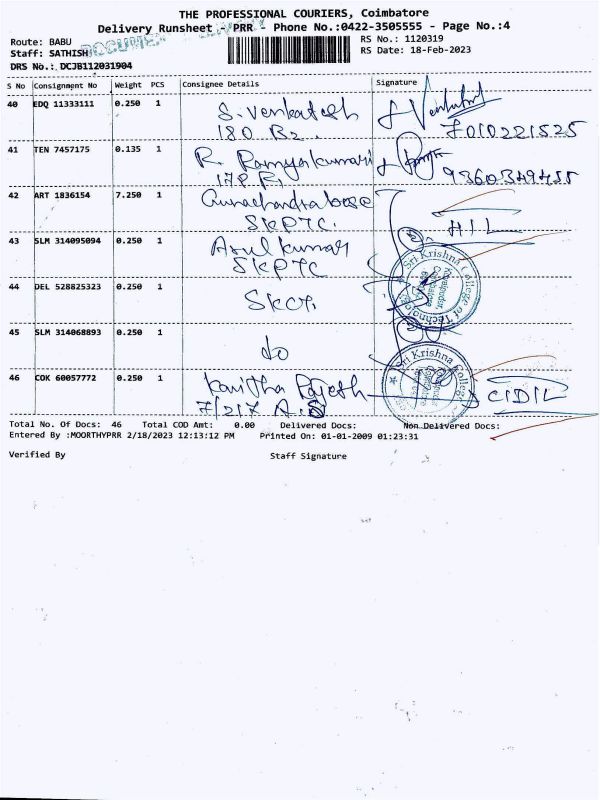 THE PROFESSIONAL COURIERS, Coimbatore
Delivery Runsheet - PRR - Phone No.:0422-3505555 - Page No.:4
Route: BABU
RS No.: 1120319
Staff: SATHISH
RS Date: 18-Feb-2023
DRS No.: DCJB112031904
S No Consignment No Weight PCS Consignee Details Signature
40 EDQ 11333111 0.250 1 S. Venkatesh
180 B2. 7010221525
41 TEN 7457175 0.135 1 R. Ramyakumari
178 R1 9360349455
42 ART 1836154 7.250 1 Gunachandrabose
SKPTC. HIL
43 SLM 314095094 0.250 1 Arul kumar
SKPTC
Sri Krishna College of Technology
44 DEL 528825323 0.250 1 SKCT.
45 SLM 314068893 0.250 1 do
Sri Krishna College
46 COK 60057772 0.250 1 Kavitha Rajesh CIDIL
7/217 A.S
Total No. Of Docs: 46 Total COD Amt: 0.00 Delivered Docs: Non Delivered Docs:
Entered By :MOORTHYPRR 2/18/2023 12:13:12 PM Printed On: 01-01-2009 01:23:31
Verified By Staff Signature